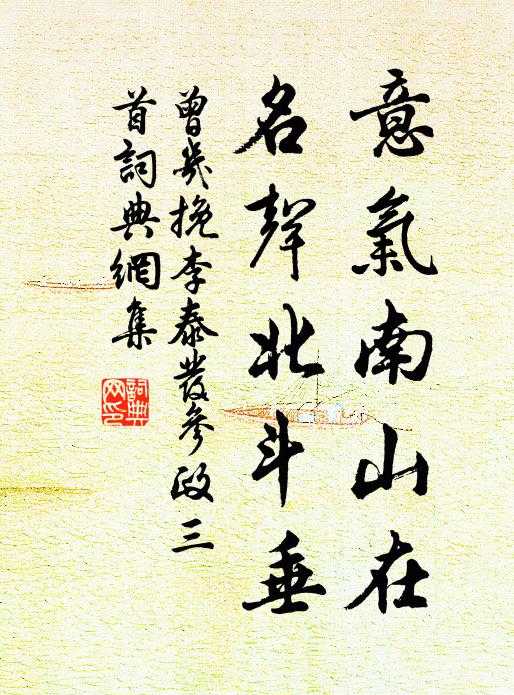 意氣南山在
名聲北斗垂
曾幾挽李泰發參政三
首詞典網集
詞典
网印